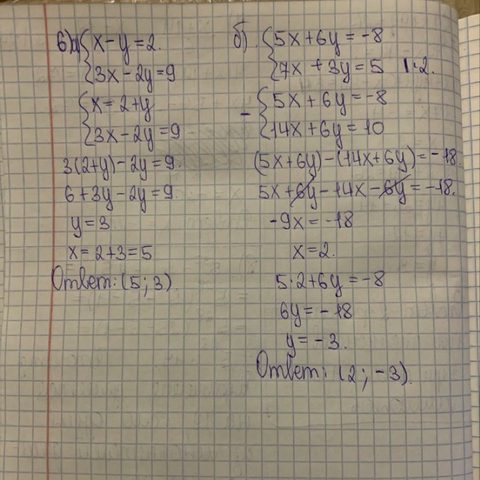 6)а) {x-y=2.
{3x-2y=9
{x=2+y
{3x-2y=9
3(2+y)-2y=9.
6+3y-2y=9.
y=3
x=2+3=5
Ответ: (5; 3)
б) {5x+6y=-8
{7x+3y=5 |·2.
- {5x+6y=-8
{14x+6y=10
(5x+6y)-(14x+6y)=-18
5x+6y-14x-6y=-18.
-9x=-18
x=2.
5·2+6y=-8
6y=-18
y=-3.
Ответ: (2; -3).